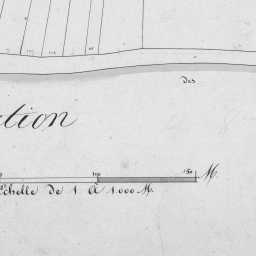 Des
ction
100 150 M.
Echelle De 1 A 1.000 M.